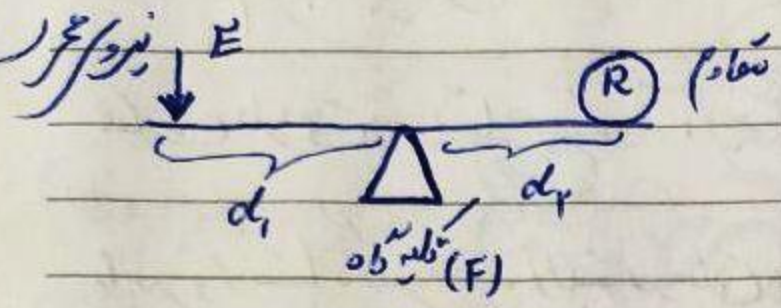 نیروی محرک E R مقاوم
d₁ d₂
تکیه‌گاه (F)